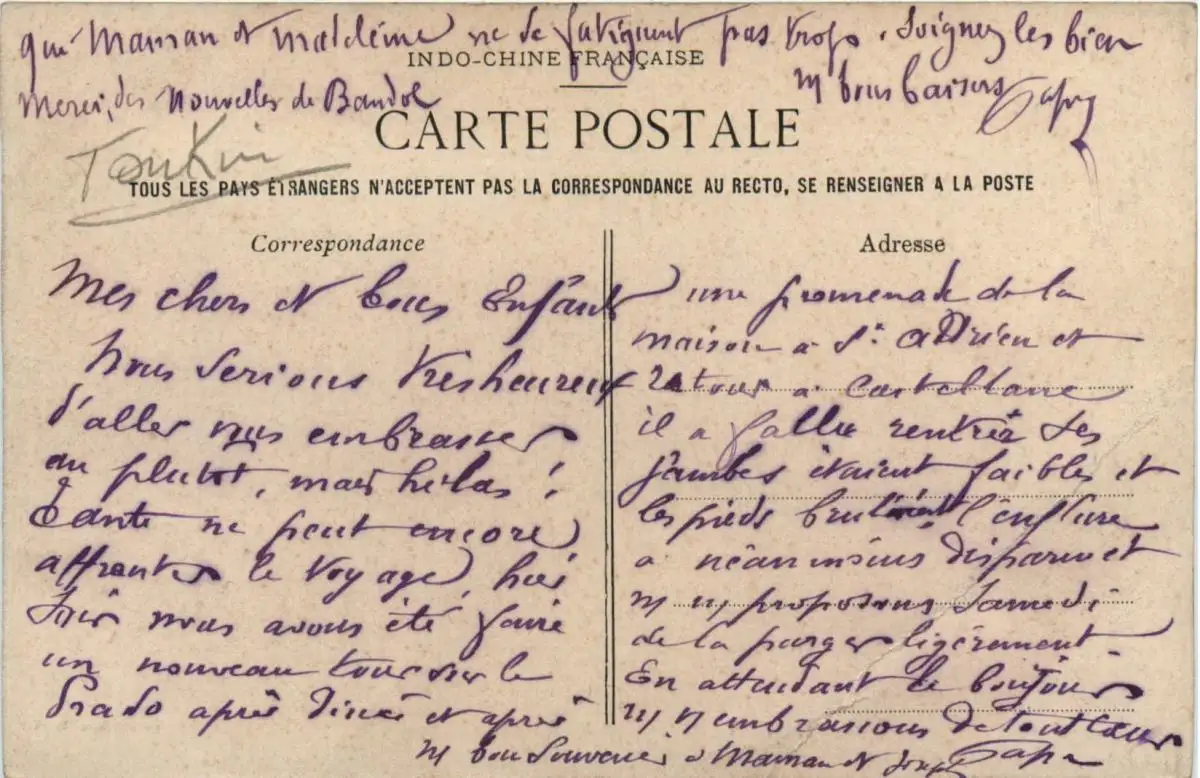 que Maman et madeleine ne se fatiguent pas trop. Soignez les bien
INDO-CHINE FRANÇAISE
Merci, des Nouvelles de Bandol
bons baisers
CARTE POSTALE
Tonkin
TOUS LES PAYS ÉTRANGERS N'ACCEPTENT PAS LA CORRESPONDANCE AU RECTO, SE RENSEIGNER A LA POSTE
Correspondance
Mes chers et bons Enfants
Nous serions très heureux
d'aller vous embrasser
au plutot, mais hélas !
tante ne peut encore
affronter le voyage, hier
soir nous avons été faire
un nouveau tour sur le
Prado après diner et après
Adresse
une promenade de la
maison à St Adrien et
retour à Castellane
il a fallu rentrer ses
jambes étaient faibles et
les pieds brulaient l'enflure
a néanmoins disparu et
ns ns proposons Samedi
de la purger légèrement.
En attendant le bonjour
ns vs embrassons de tout cœur
bon Souvenir à Maman et
Papa